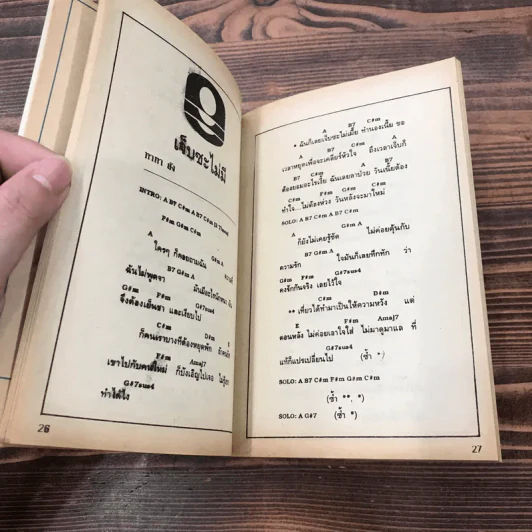 เจ็บซะไม่มี
ทาทา ยัง
INTRO: A B7 C#m A B7 C#m (3 Times)
F#m G#m C#m
A G#m A
ใครๆ ก็คอยถามฉัน
B7 G#m A
ฉันไม่พูดจา
G#m F#m G#7sus4
จึงต้องเย็นชา และเงียบไป
C#m D#m E
ก็คนเขาบางทีต้องหยุดพัก
F#m Amaj7
เขาไปกับคนใหม่ ก็บังเอิญไปเจอ
G#7sus4
ทำใด้ไง
26
A B7 C#m
* ฉันก็เลยเจ็บซะไม่มี ทำนองเนี้ย ขอ
A B7 C#m A
เวลาหยุดเพื่อจะเคลียร์หัวใจ ถึงเวลาเจ็บก็
B7 C#m A B7
ต้องยอมอะไรเรื่อย ฉันเลยลาป่วย วันเนี้ยต้อง
C#m F#m G#m C#m
ทำใจ...ไม่ต้องห่วง วันหลังจะมาใหม่
SOLO: A B7 C#m A B7 C#m
A G#m A
ก็ยังไม่เคยรู้ซัด ไม่ค่อยคุ้นกับ
B7 G#m A
ความรัก ใจมันก็เลยทึกทัก ว่า
G#m F#m G#7sus4
คงรักกันจริง เลยไว้ใจ
C#m D#m
** เที่ยวได้ทำมาเป็นให้ความหวัง แต่
E F#m Amaj7
ตอนหลัง ไม่ค่อยเอาใจใส่ ไม่มาดูมาแล ที่
G#7sus4
แท้ก็แปรเปลี่ยนไป (ซ้ำ *)
SOLO: A B7 C#m F#m G#m C#m
(ซ้ำ **, *)
SOLO: A G#7 (ซ้ำ *)
27